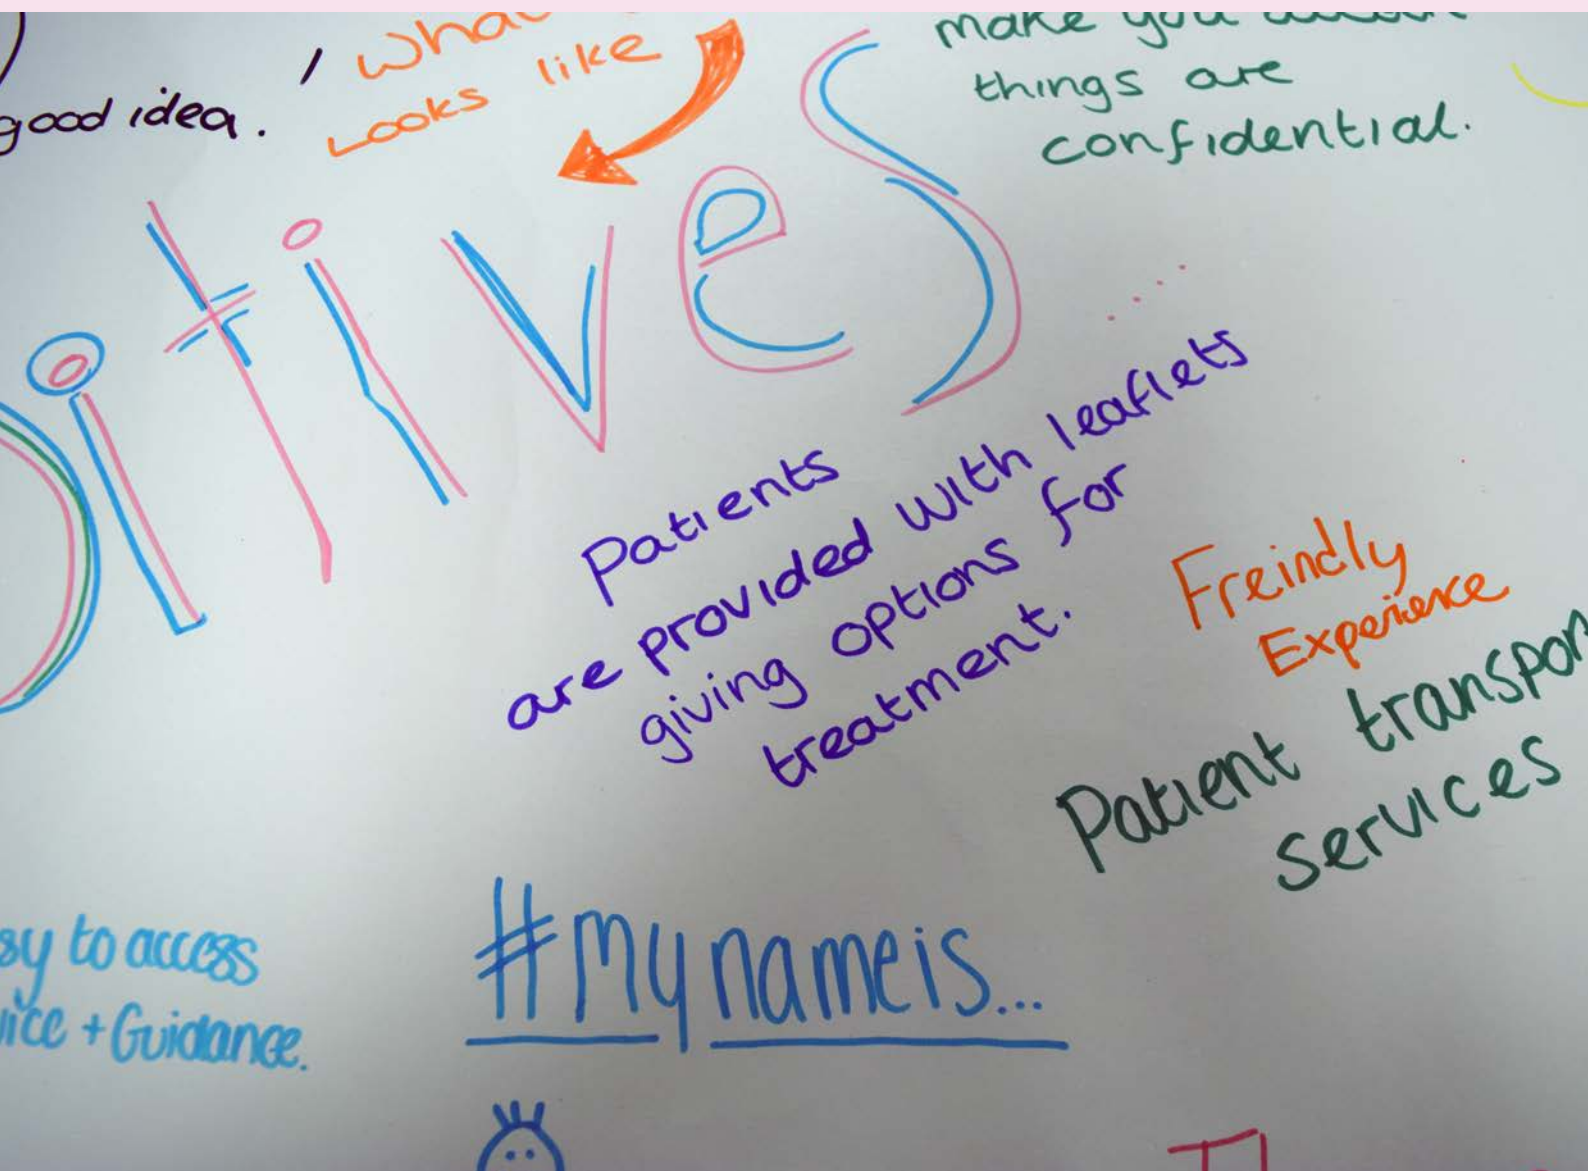 looks like
good idea.
make you
things are
confidential.
itives
Patients
are provided with leaflets
giving options for
treatment.
Freindly
Experience
Patient transpor
services
sy to access
vice + Guidance.
#mynameis...